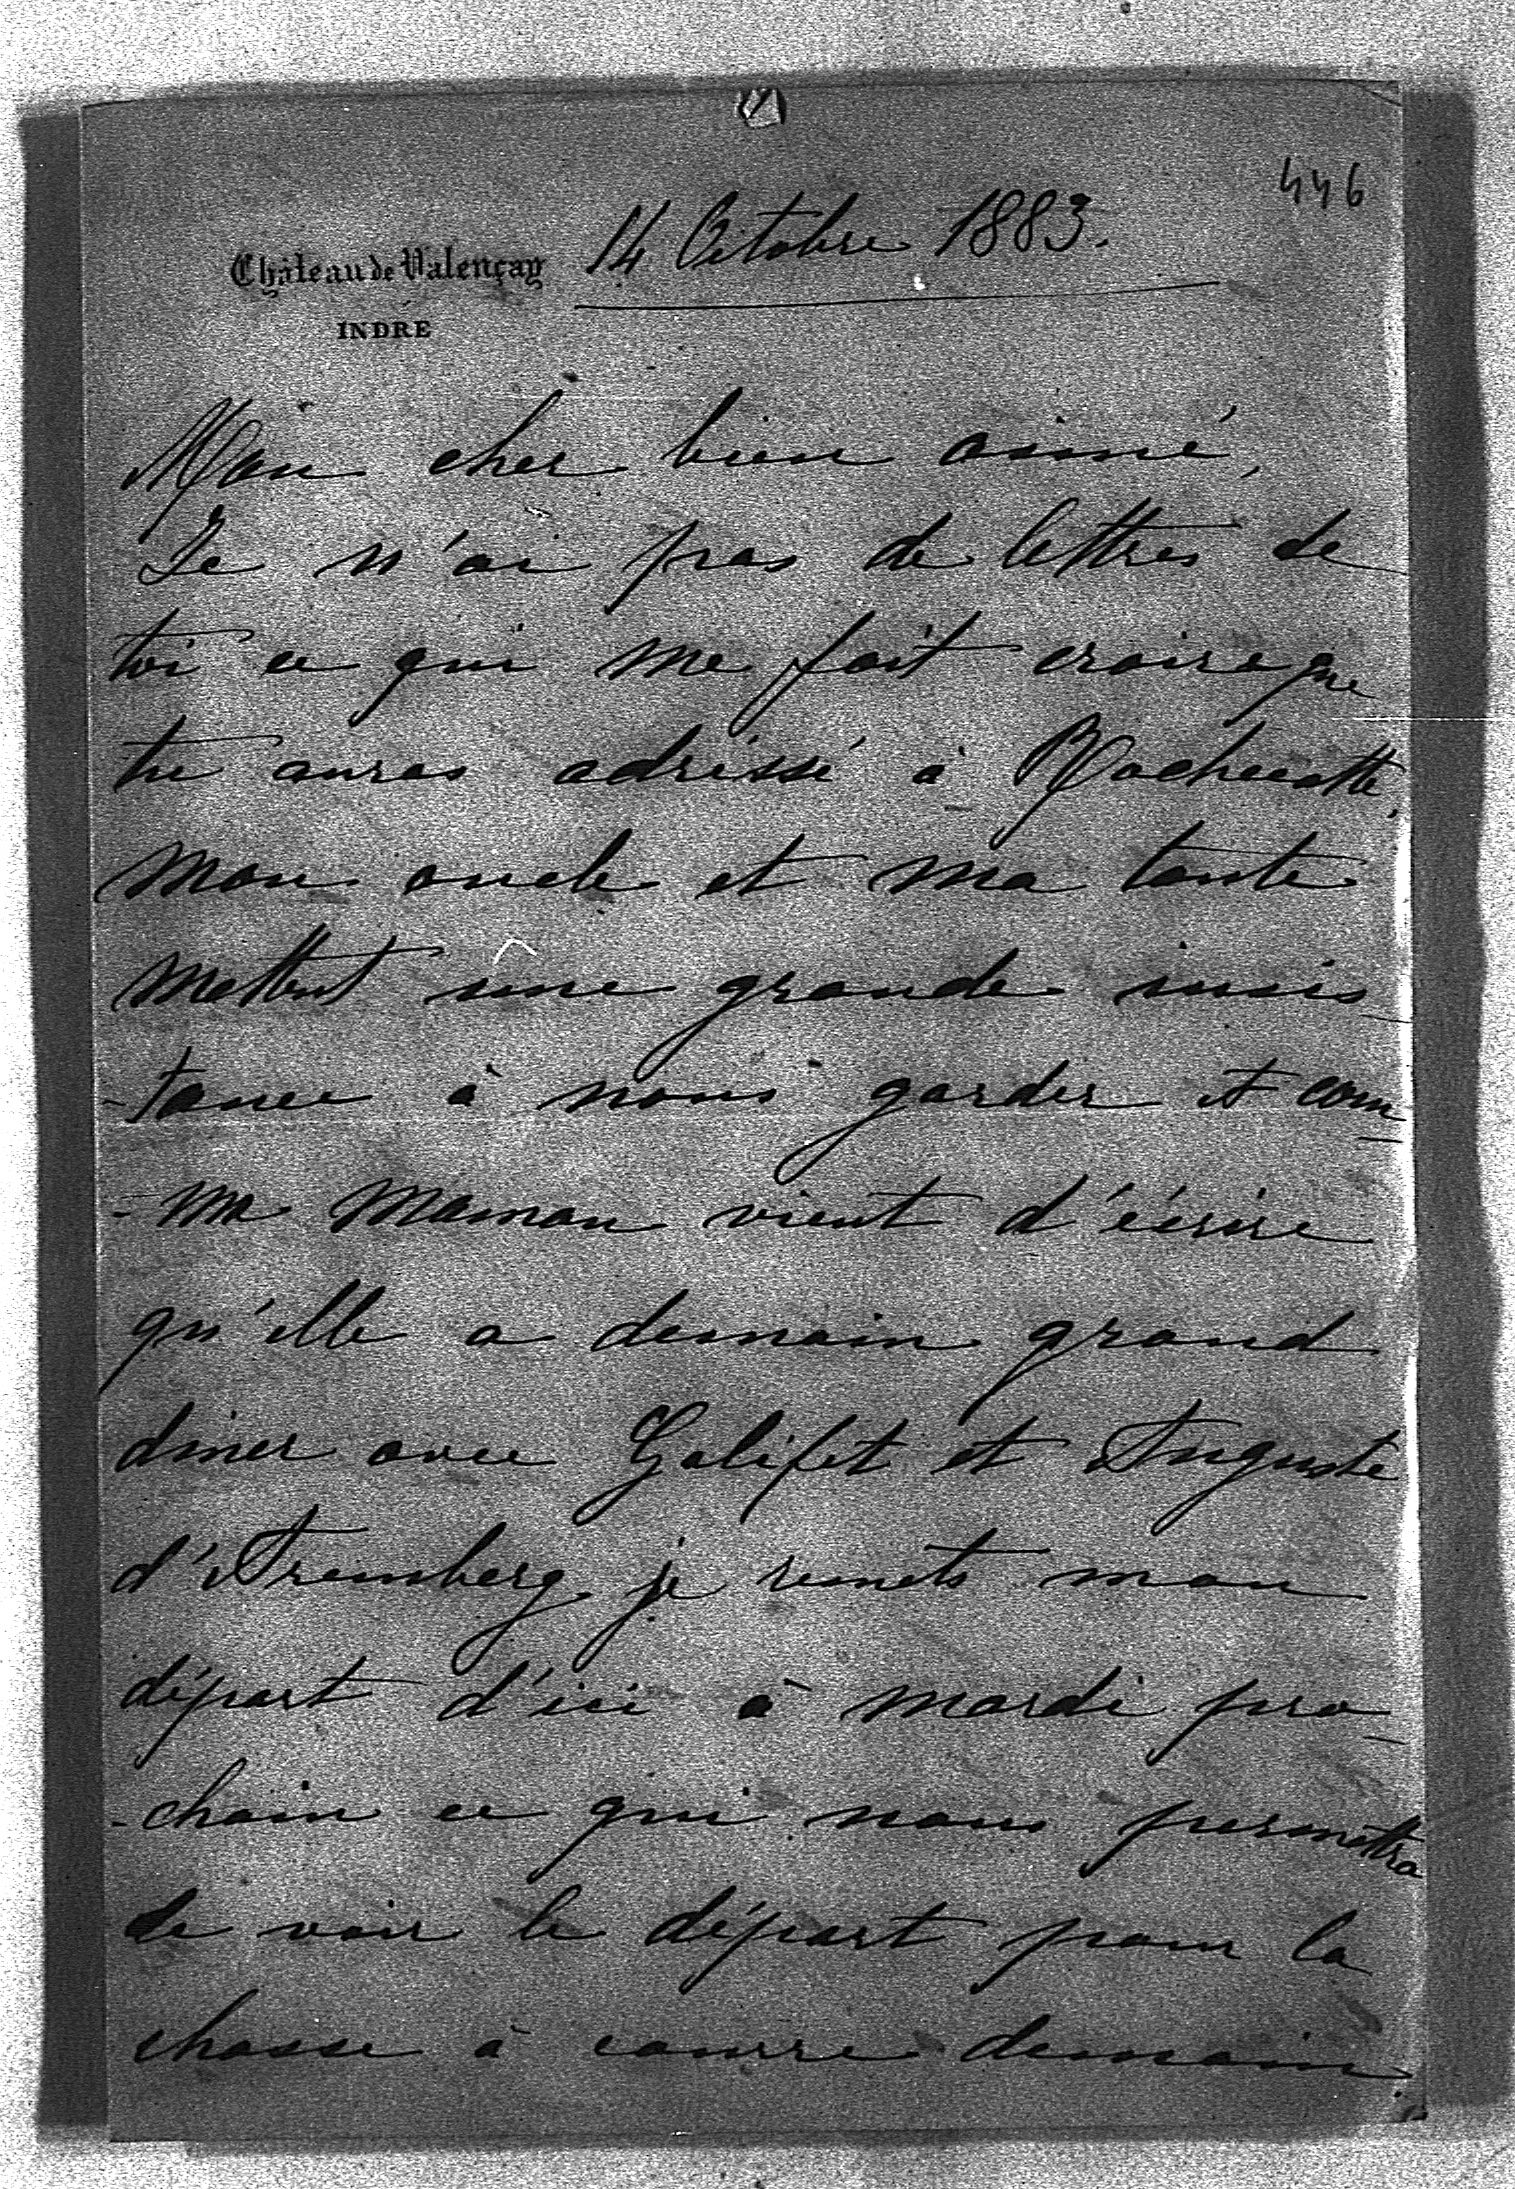 446
Château de Valençay 14 Octobre 1883.
INDRE
Mon cher bien aimé,
Je n'ai pas de lettres de
toi ce qui me fait croire que
tu auras adréssé à Rochecotte.
Mon oncle et ma tante
mettent une grande insis
-tance à nous garder et com
-me Maman vient d'écrire
qu'elle a demain grand
diner avec Galifet et Auguste
d'Aremberg je remets mon
départ d'ici à mardi pro
-chain ce qui nous permettra
de voir le départ pour la
chasse à courre demain.